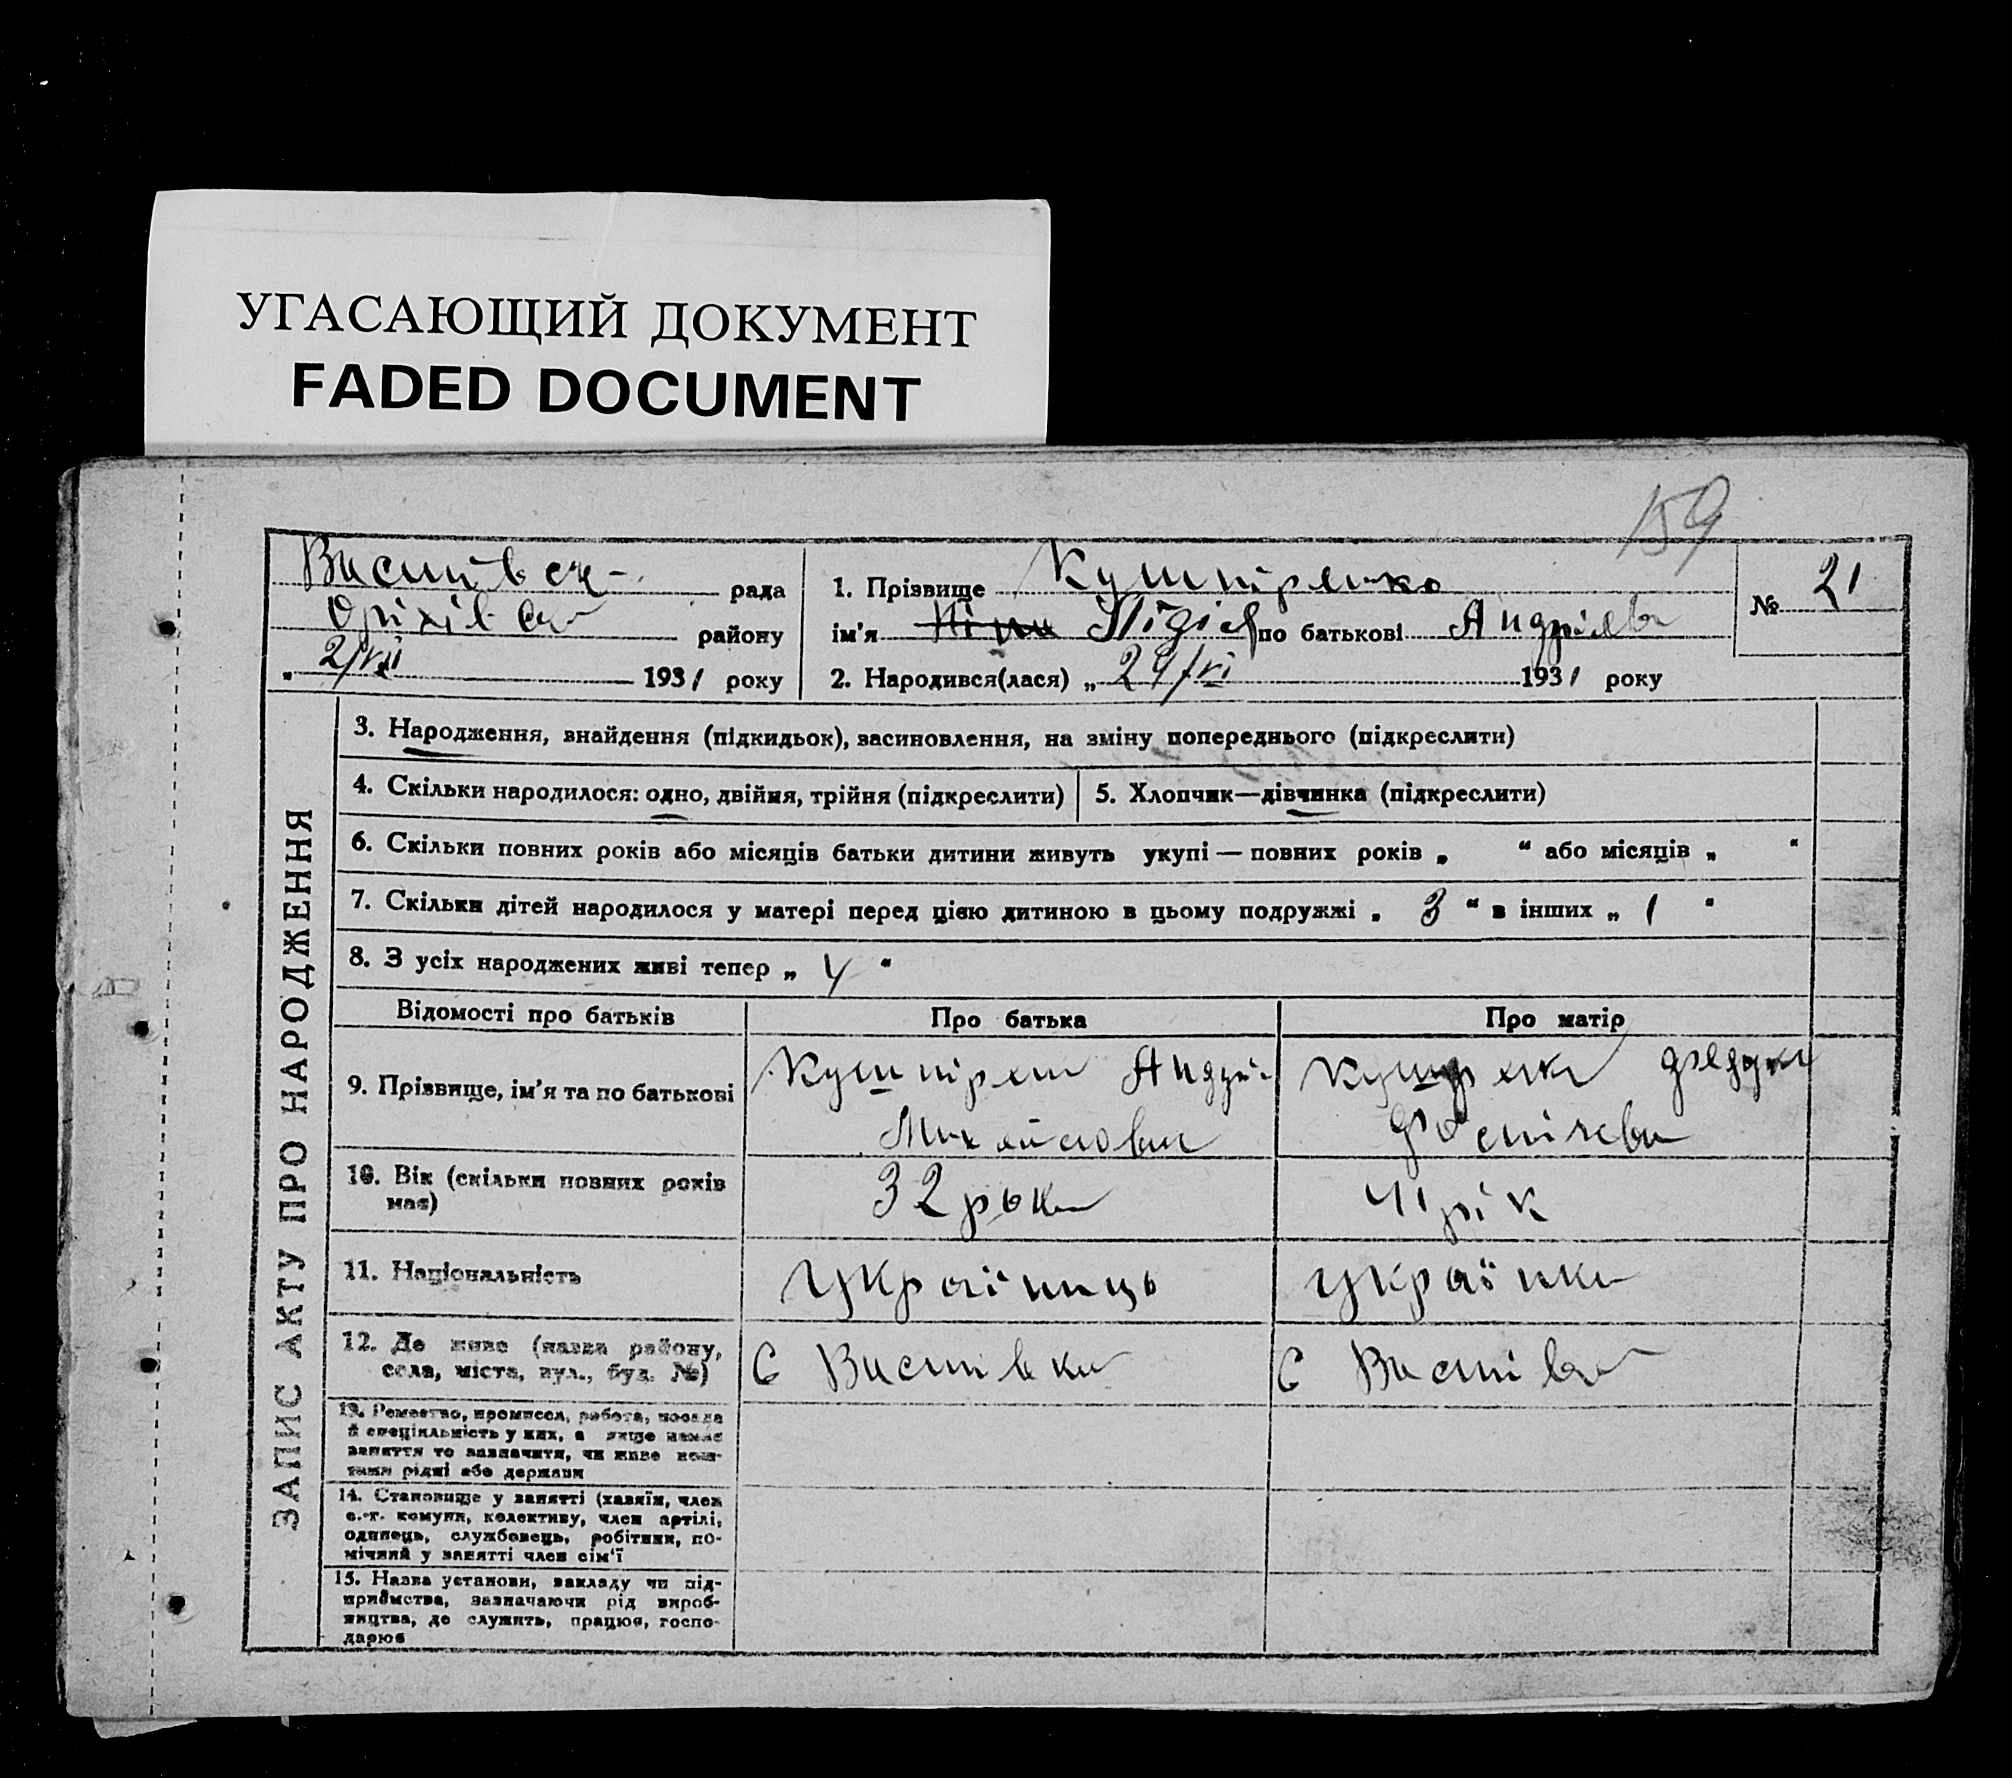 УГАСАЮЩИЙ ДОКУМЕНТ
FADED DOCUMENT
159
рада
району
2/VII 1931 року
1. Прізвище Кушніренко
ім'я Ніна Лідія по батькові Андрієва
2. Народився(лася) „ 29/VI 1931 року
№ 21
ЗАПИС АКТУ ПРО НАРОДЖЕННЯ
3. Народження, знайдення (підкидьок), засиновлення, на зміну попереднього (підкреслити)
4. Скільки народилося: одно, двійня, трійня (підкреслити)
5. Хлопчик—дівчинка (підкреслити)
6. Скільки повних років або місяців батьки дитини живуть укупі — повних років „ “ або місяців „ “
7. Скільки дітей народилося у матері перед цією дитиною в цьому подружжі „ 3 “ в інших „ 1 “
8. З усіх народжених живі тепер „ 4 “
Відомості про батьків
Про батька
Про матір
9. Прізвище, ім'я та по батькові
Андрій
Михайлович
10. Вік (скільки повних років
має)
32 роки
41 рік
11. Національність
Українець
Українка
12. Де живе (назва району,
села, міста, вул., буд. №)
С
С
13. Ремество, промисел, работа, посада
й спеціяльність у них, а якще немає
заняття то зазначити, чи живе кош-
тами рідні або держави
14. Становище у занятті (хазяїн, член
с.-г. комуни, колективу, член артілі,
одинець, службовець, робітник, по-
мічний у занятті член сім'ї
15. Назва установи, закладу чи під-
приємства, зазначаючи рід вироб-
ництва, де служить, працює, госпо-
дарює